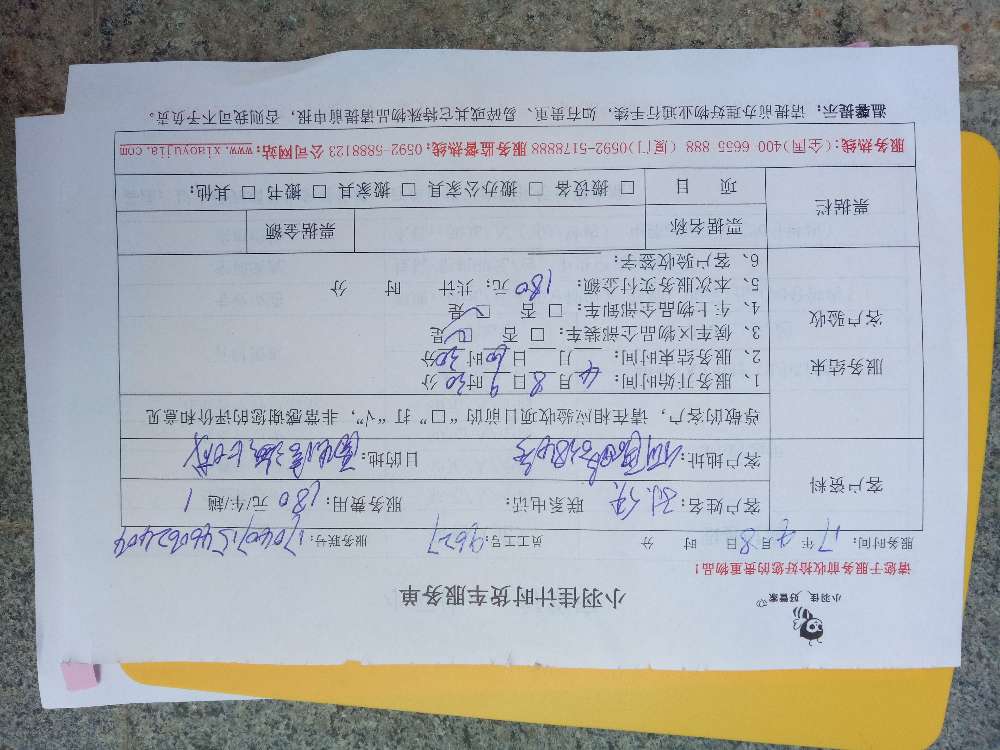 小羽佳、好管家
小羽佳计时货车服务单
请您于服务前收拾好您的贵重物品！
服务时间： 17 年 4 月 8 日 时 分 员工工号： 9627 服务联号：
客户资料
客户姓名： 联系电话： 服务费用： 180 元/车/趟 1
客户地址： 目的地：
尊敬的客户，请在相应验收项目前的“□”打“√”，非常感谢您的评价和意见
服务结束
客户验收
1、服务开始时间： 4 月 8 日 9 时 30 分
2、服务结束时间： 月 日 10 时 30 分
3、候车区物品全部装车：□ 否 □ 是
4、车上物品全部到车：□ 否 □ 是
5、本次服务交付金额： 180 元；共 计 时 分
6、客户验收签字：
票据栏
票据名称 票据金额
项 目 □ 搬设备 □ 搬办公家具 □ 搬家具 □ 搬书 □ 其他：
服务热线：(全国)400 6655 888 (厦门)0592-5178888 服务监督热线：0592-5888123 公司网站：www.xiaoyujia.com
温馨提示：请提前办理好物业通行手续，如有贵重、易碎或其它特殊物品请提前申报，否则我司不予负责。